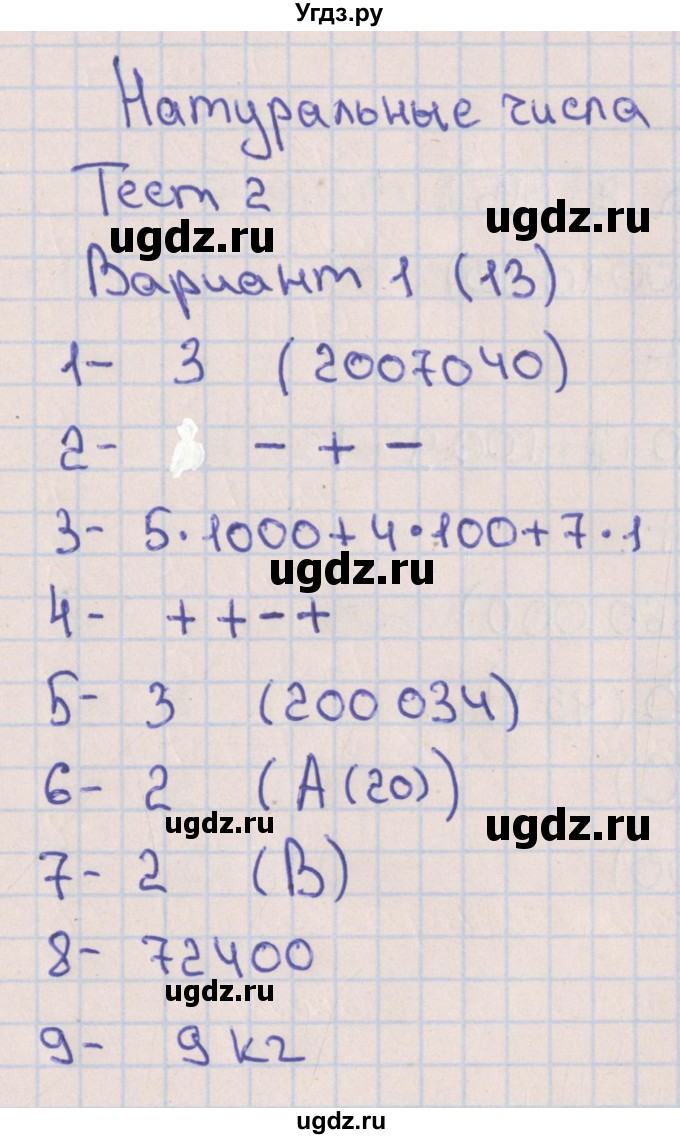 Угдз.ру
Натуральные числа
Тест 2
ugdz.ru
ugdz.ru
Вариант 1 (13)
1- 3 (2007040)
2- - + -
3- 5·1000+4·100+7·1
ugdz.ru
4- + + - +
5- 3 (200 034)
6- 2 (А(20))
ugdz.ru
ugdz.ru
7- 2 (В)
8- 72400
ugdz.ru
9- 9 кг
ugdz.ru